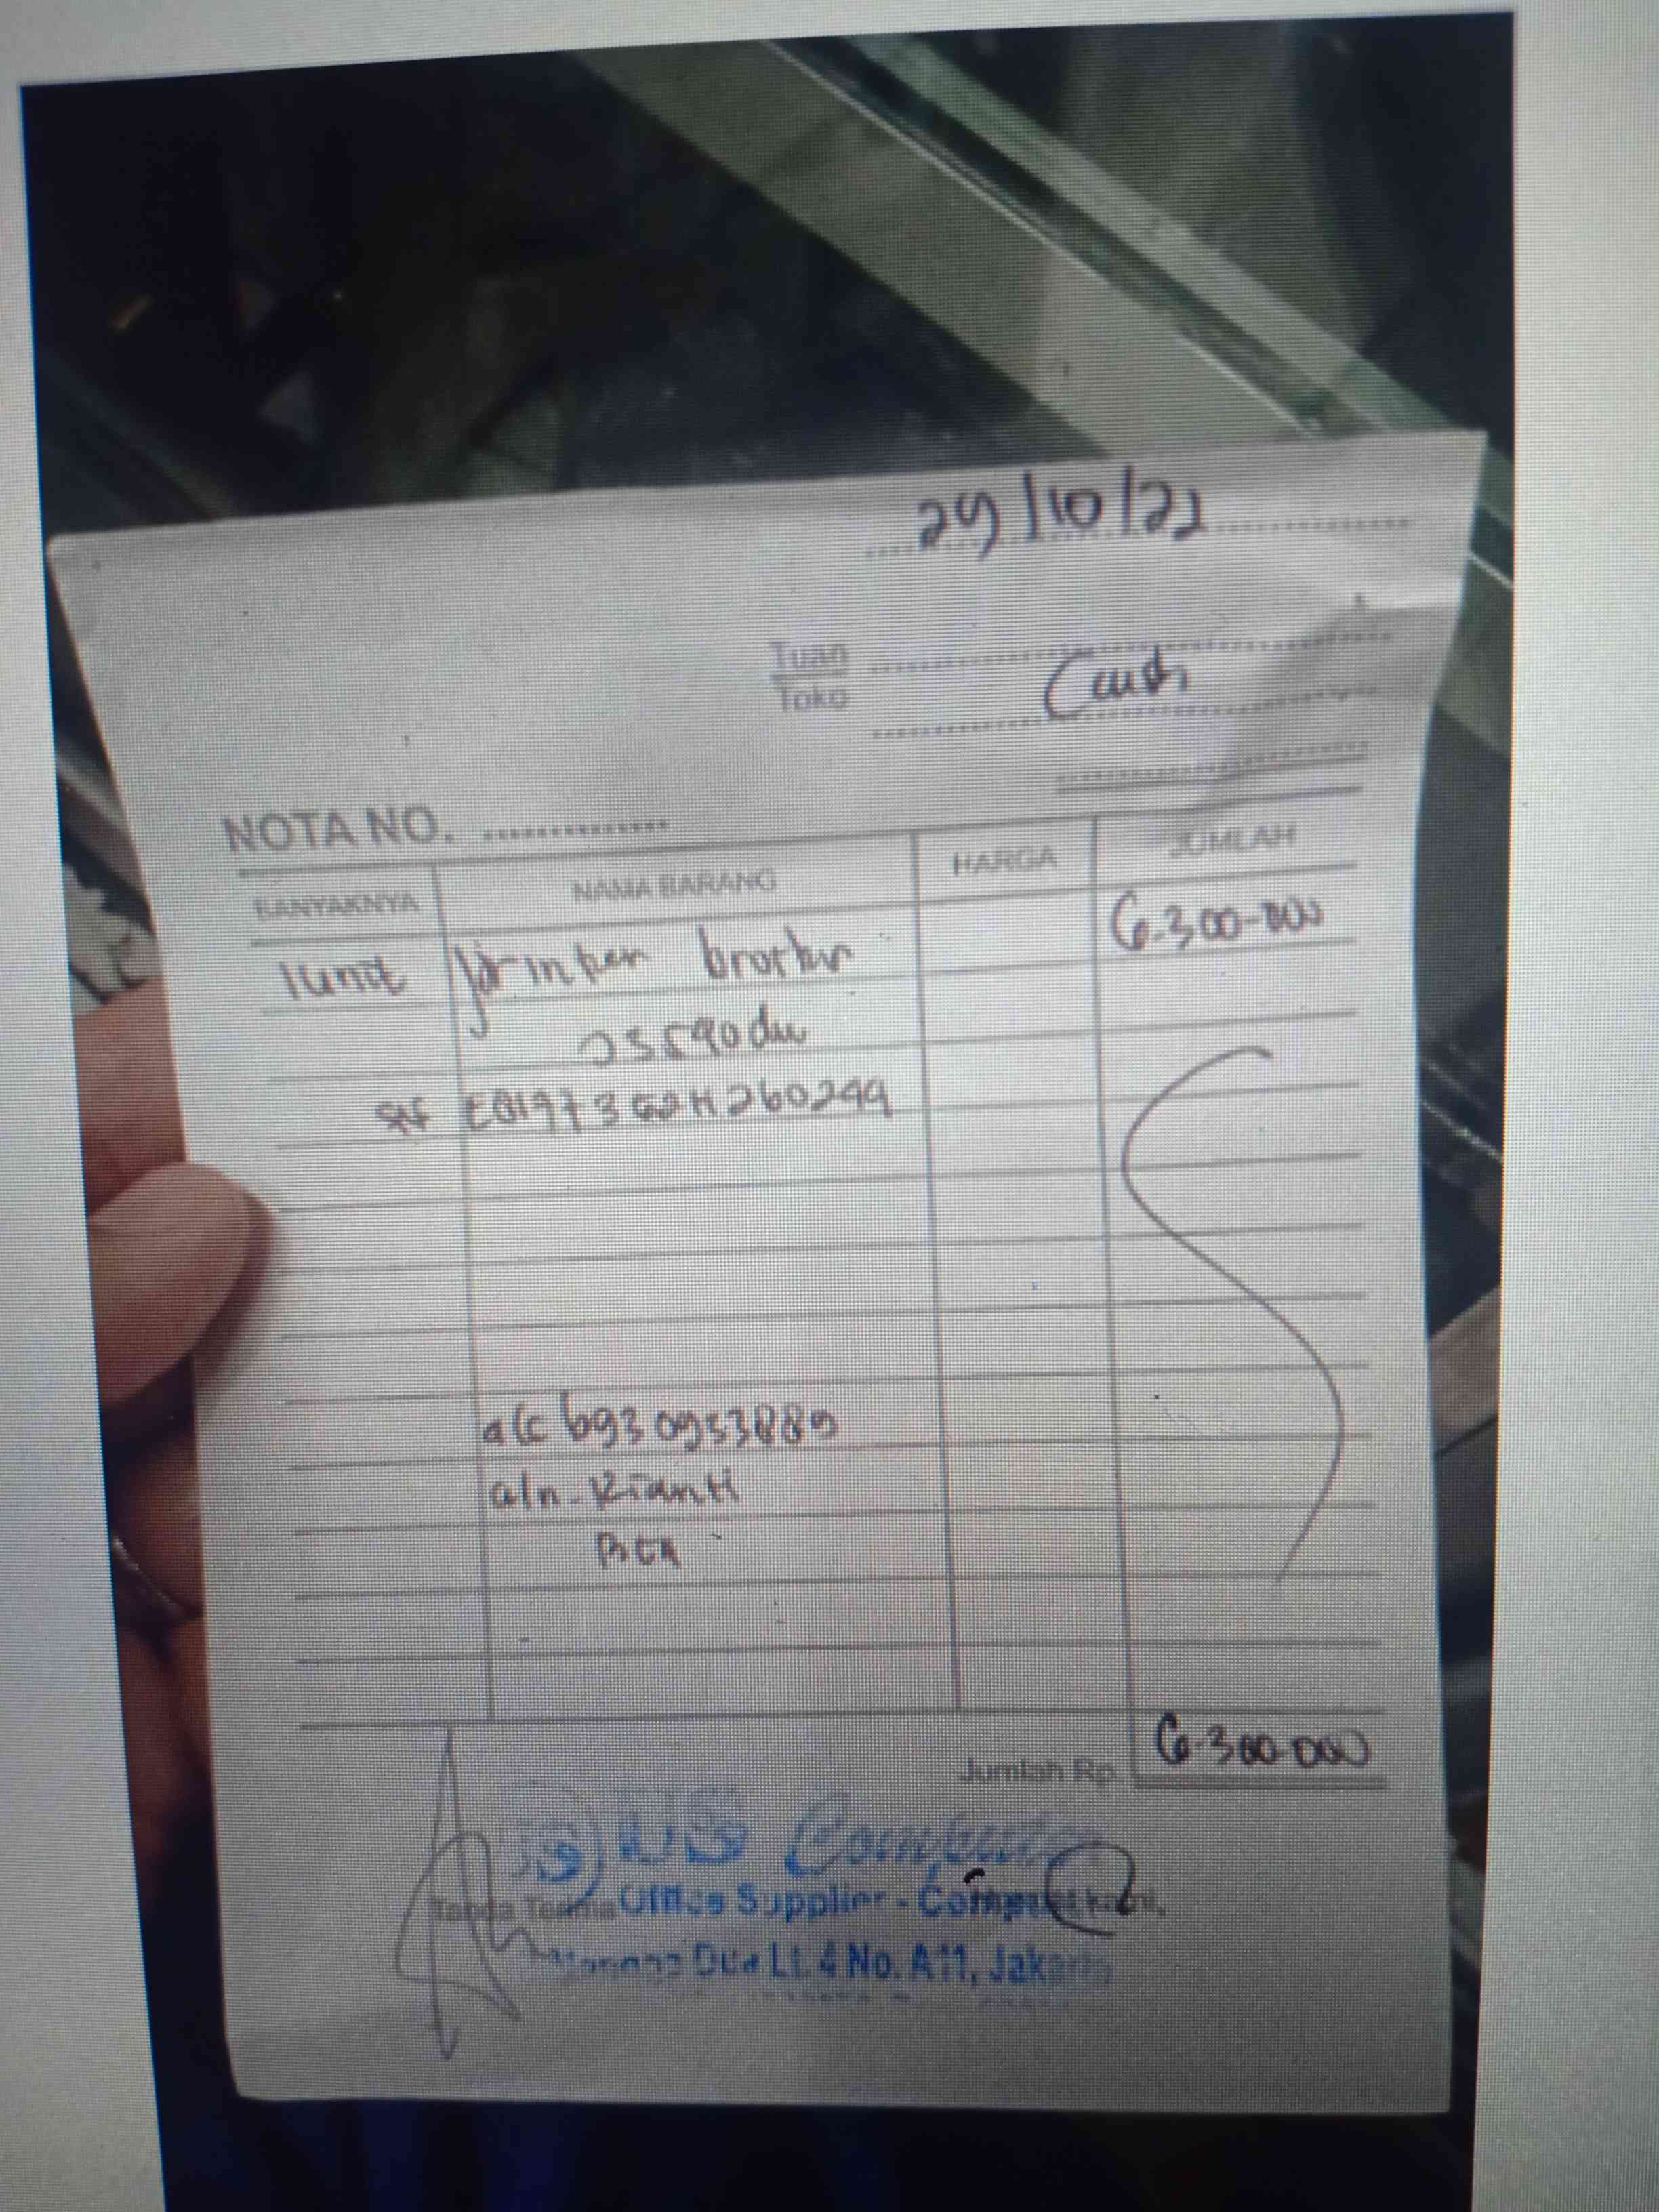 29/10/21
Tuan
Toko
Cash
NOTA NO. ..............
BANYAKNYA NAMA BARANG HARGA JUMLAH
1unit printer brother 6.300.000
EQ1973
acc 6930953889
a/n. Rianti
BCA
Jumlah Rp. 6.300.000
US Computer
Tanda Terima Office Supplier - Compu
Dua Lt. 4 No. A11, Jakarta